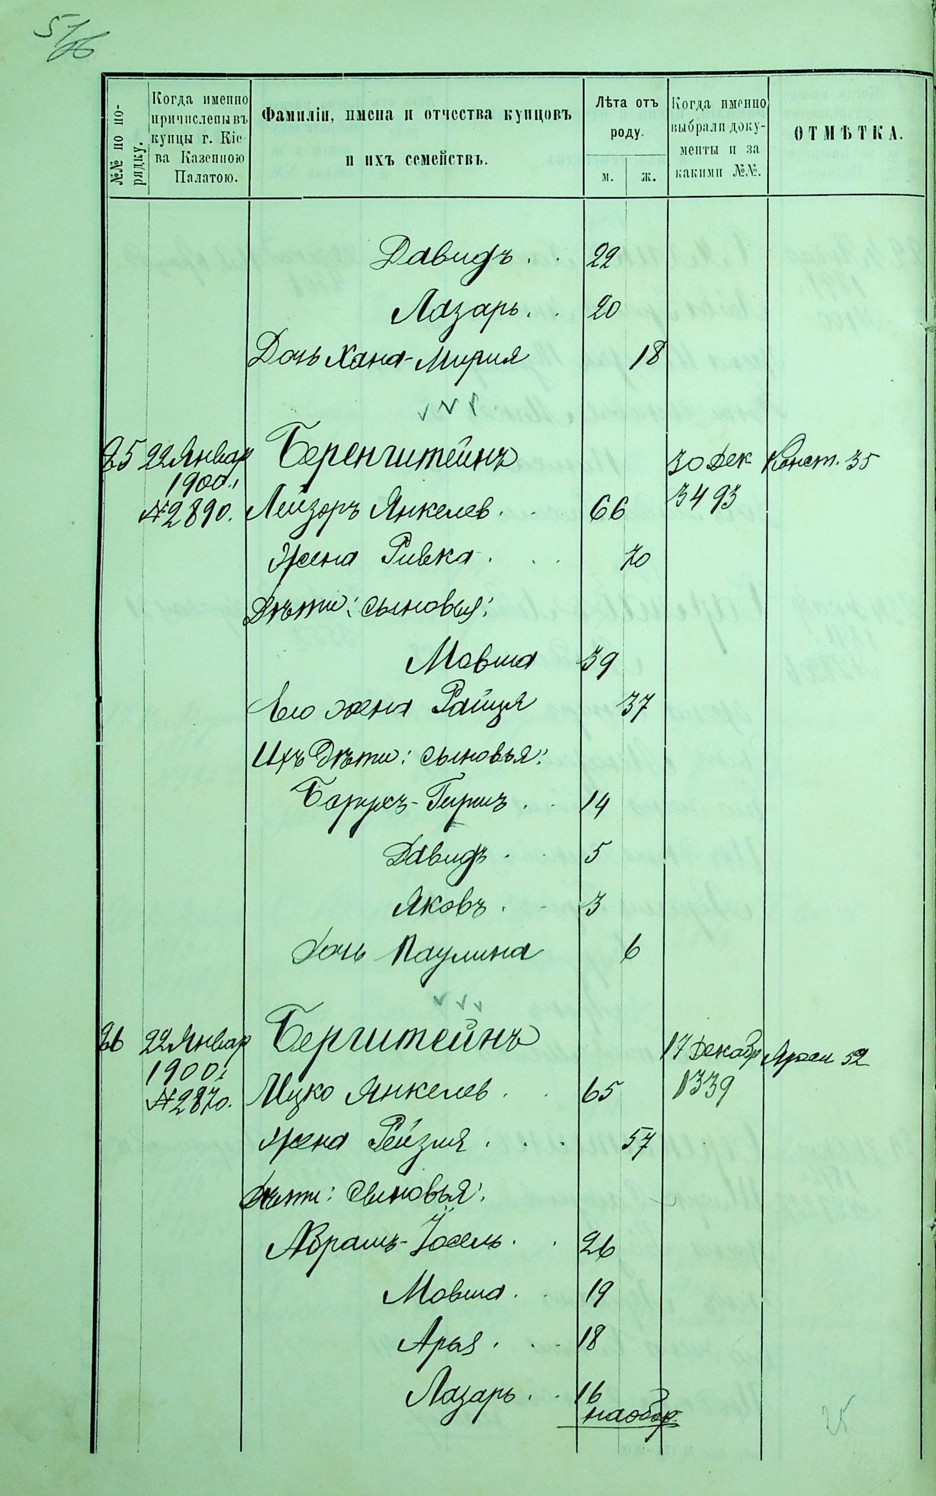 57/66
№№ по по-
рядку.
Когда именно
причислены въ
купцы г. Кіе-
ва Казенною
Палатою.
Фамиліи, имена и отчества купцовъ
и ихъ семействъ.
Лѣта отъ
роду.
м. ж.
Когда именно
выбрали доку-
менты и за
какими №№.
ОТМѢТКА.
Давидъ . . 22
Лазарь . . 20
Дочь Хана-Мирия 18
25 22 Январ Беренштейнъ 30 Дек Конст. 35
1900.
№2890. Лейзоръ Янкелев . . . 66 3493
Жена Ривка . . . 70
Дѣти: сыновья:
Мовша 39
Его жена Райця 37
Ихъ Дѣти: сыновья:
Борухъ-Гершъ . . 14
Давидъ . . 5
Яковъ . . 3
Дочь Паулина 6
26 22 Январ Бергштейнъ 17 Декабр Яросл 52
1900.
№2870. Ицко Янкелев . . 65 1339
Жена Рейзля . . . 57
Дѣти: сыновья:
Абрамъ-Іосель . . 26
Мовша . . 19
Арья . . . 18
Лазарь . . 16
наобор
25